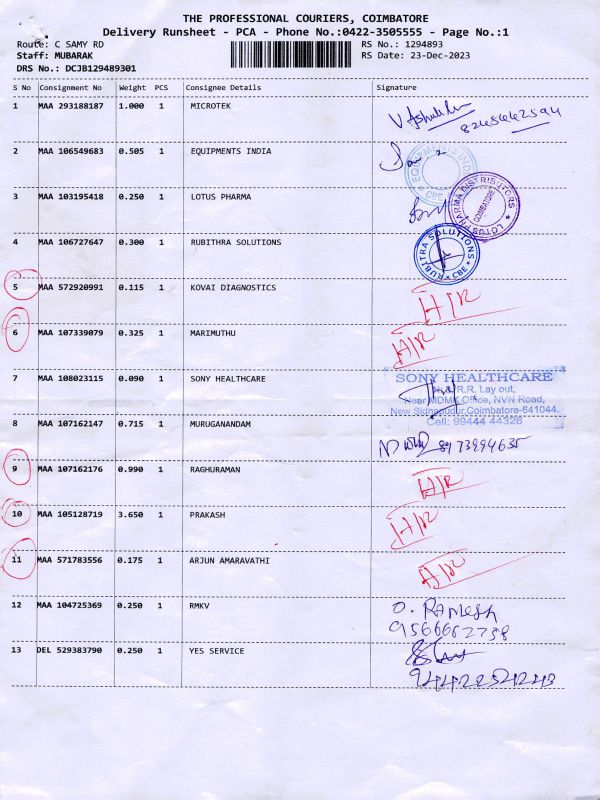 THE PROFESSIONAL COURIERS, COIMBATORE
Delivery Runsheet - PCA - Phone No.:0422-3505555 - Page No.:1
Route: C SAMY RD
RS No.: 1294893
Staff: MUBARAK
RS Date: 23-Dec-2023
DRS No.: DCJB129489301
S No Consignment No Weight PCS Consignee Details Signature
1 MAA 293188187 1.000 1 MICROTEK
2 MAA 106549683 0.505 1 EQUIPMENTS INDIA
EQUIPMENTS INDIA
CBE
3 MAA 103195418 0.250 1 LOTUS PHARMA
LOTUS PHARMA DISTRIBUTORS
COIMBATORE
4 MAA 106727647 0.300 1 RUBITHRA SOLUTIONS
RUBITRA SOLUTIONS
CBE
5 MAA 572920991 0.115 1 KOVAI DIAGNOSTICS
6 MAA 107339079 0.325 1 MARIMUTHU
7 MAA 108023115 0.090 1 SONY HEALTHCARE
SONY HEALTHCARE
R.R. Lay out,
Near MDMK Office, NVN Road,
New Sidhapudur, Coimbatore-641044.
Cell: 99444 44326
8 MAA 107162147 0.715 1 MURUGANANDAM
8973994635
9 MAA 107162176 0.990 1 RAGHURAMAN
10 MAA 105128719 3.650 1 PRAKASH
11 MAA 571783556 0.175 1 ARJUN AMARAVATHI
12 MAA 104725369 0.250 1 RMKV
O. RAMESH
9566662738
13 DEL 529383790 0.250 1 YES SERVICE